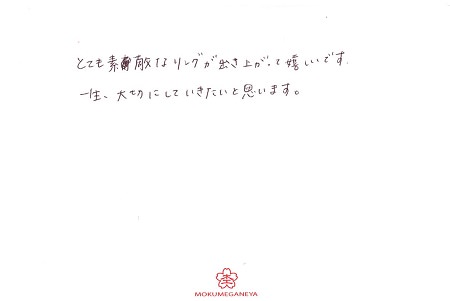 とても素敵なリングが出き上がって嬉しいです.
一生、大切にしていきたいと思います。
MOKUMEGANEYA